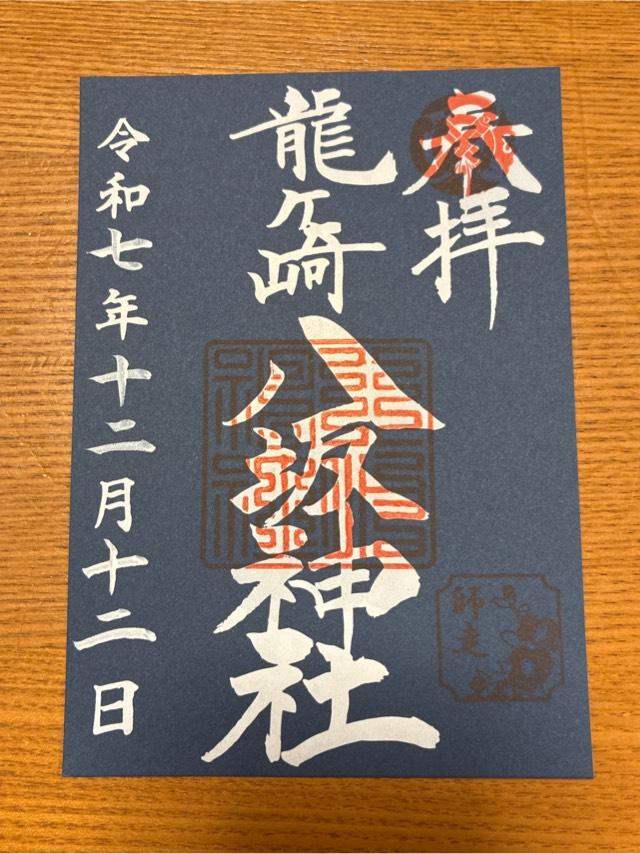 奉拝
龍ヶ崎
八坂神社
令和七年十二月十二日
師走